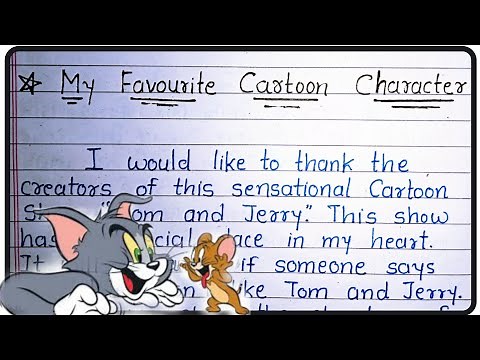 My Favourite Cartoon Character
I would like to thank the
creators of this sensational Cartoon
Tom and Jerry." This show
has place in my heart.
It if someone says
like Tom and Jerry.